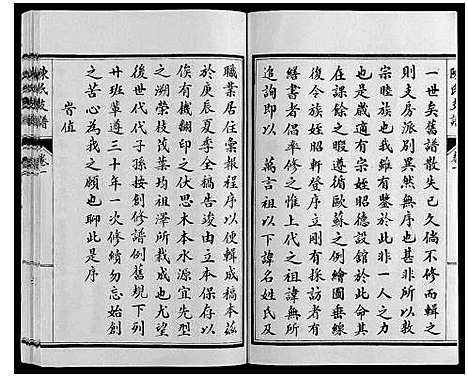 一世矣舊譜散失已久倘不修而輯之
則支房派别異然無序甚非所以敦
宗睦族也我雖有鑒於此非一人之
也是歲適有宗姪昭德設館於此命其
在課餘之暇遵循歐蘇之例繪圖垂線
後令族姪昭軒登序立剛有採訪者有
繕書者侶率修惟上代之祖諱無所
追詢即以 萬言祖以下諱名姓氏及
職業居住彙報程序以便輯成稿本茲
於庚辰夏季全稿告竣由立本保存以
俟有機翻印之伏思木本水源宜先型
之溯榮枝茂葉均祖澤所蔭也尤望
後世代代子孫按創修譜例舊規下列
廿班輩遵三十年一次修續勿忘始創
之苦心為我之願也聊此是序
時值
陳氏支譜
卷一